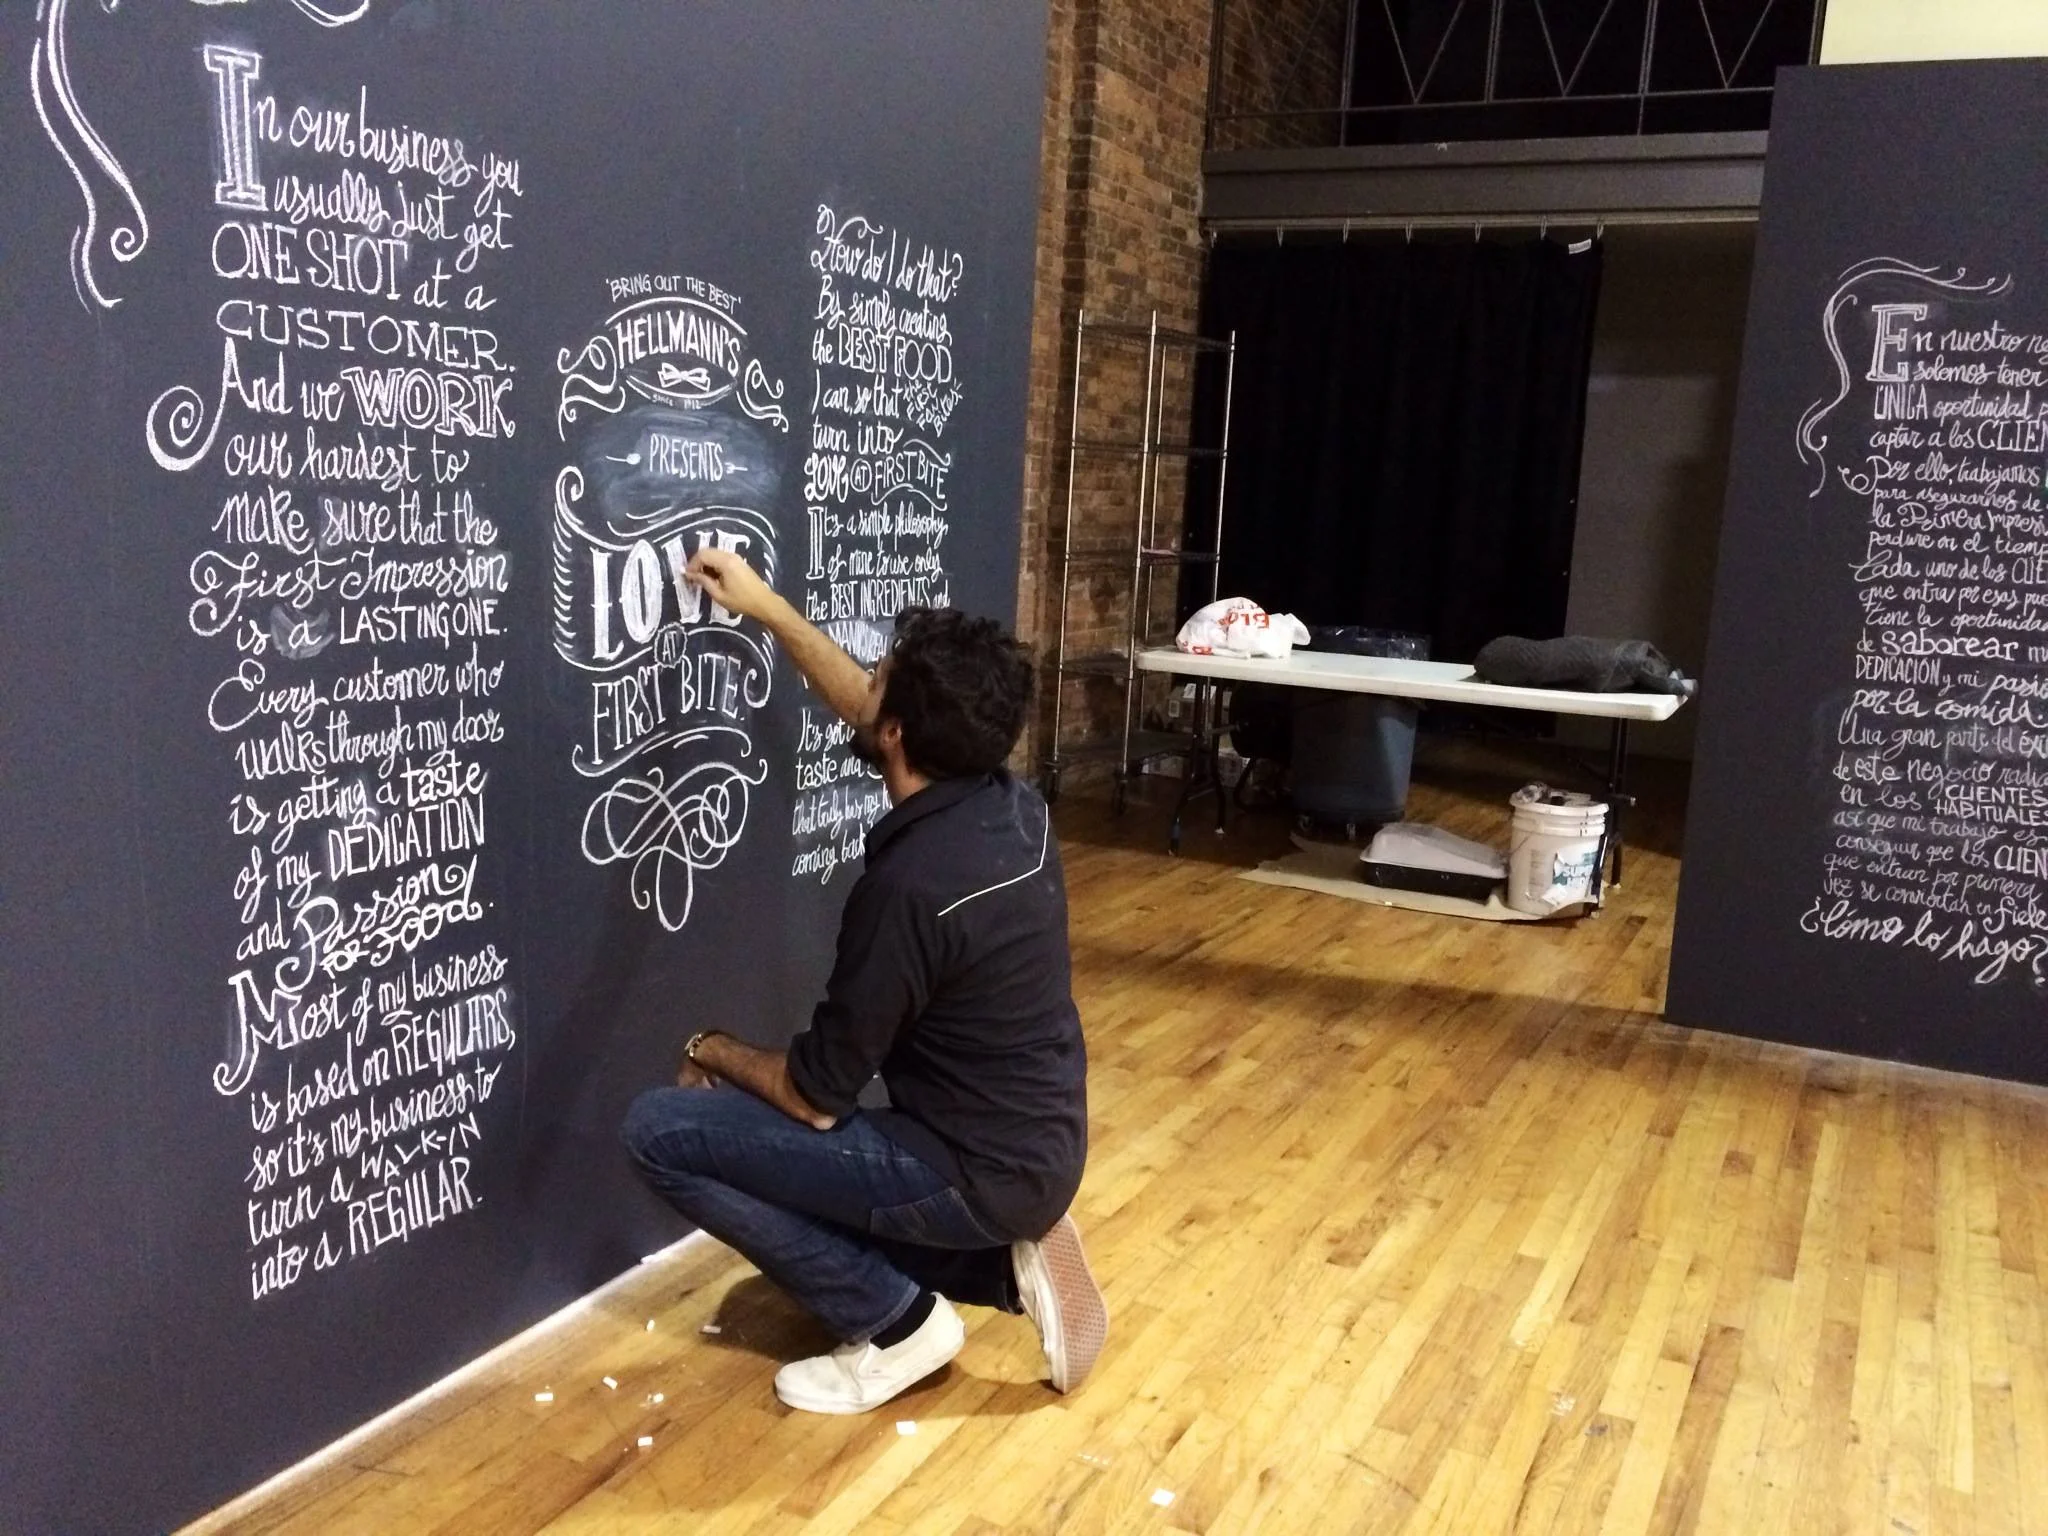 In our business you
usually just get
ONE SHOT at a
CUSTOMER.
And we WORK
our hardest to
make sure that the
First Impression
is a LASTING ONE.
Every customer who
walks through my door
is getting a taste
of my DEDICATION
and Passion
FOR Food.
Most of my business
is based on REGULARS,
so it's my business to
turn a WALK-IN
into a REGULAR.
'BRING OUT THE BEST'
HELLMANN'S
since 1912
PRESENTS
LOVE
AT
FIRST BITE.
How do I do that?
By simply creating
the BEST FOOD
I can, so that
turn into
LOVE AT FIRST BITE
It's a simple philosophy
of mine to use only
the BEST INGREDIENTS and
It's got
taste and
that truly has my
coming back
En nuestro
solemos tener
ÚNICA oportunidad
captar a los
Por ello, trabajamos
para asegurarnos de
la Primera
perdure en el tiempo
Cada uno de los
que entra por esas
tiene la oportunidad
de saborear
DEDICACIÓN y mi
por la comida.
Una gran parte del
de este negocio
en los CLIENTES
HABITUALES
así que mi trabajo es
conseguir que los
que entran por primera
vez se conviertan en
¿Cómo lo hago?